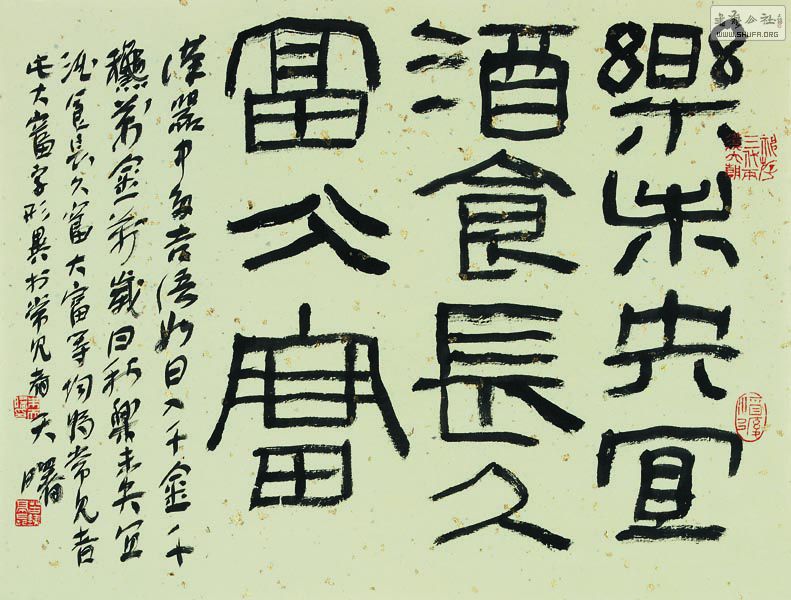 書藝公社
WWW.SHUFA.ORG
樂未央宜
酒食長久
富大富
漢器中多吉語如日入千金千
穐萬金萬歲日利樂未央宜
酒食長久富大富等均為常見者
此大富字形異於常見者天曙